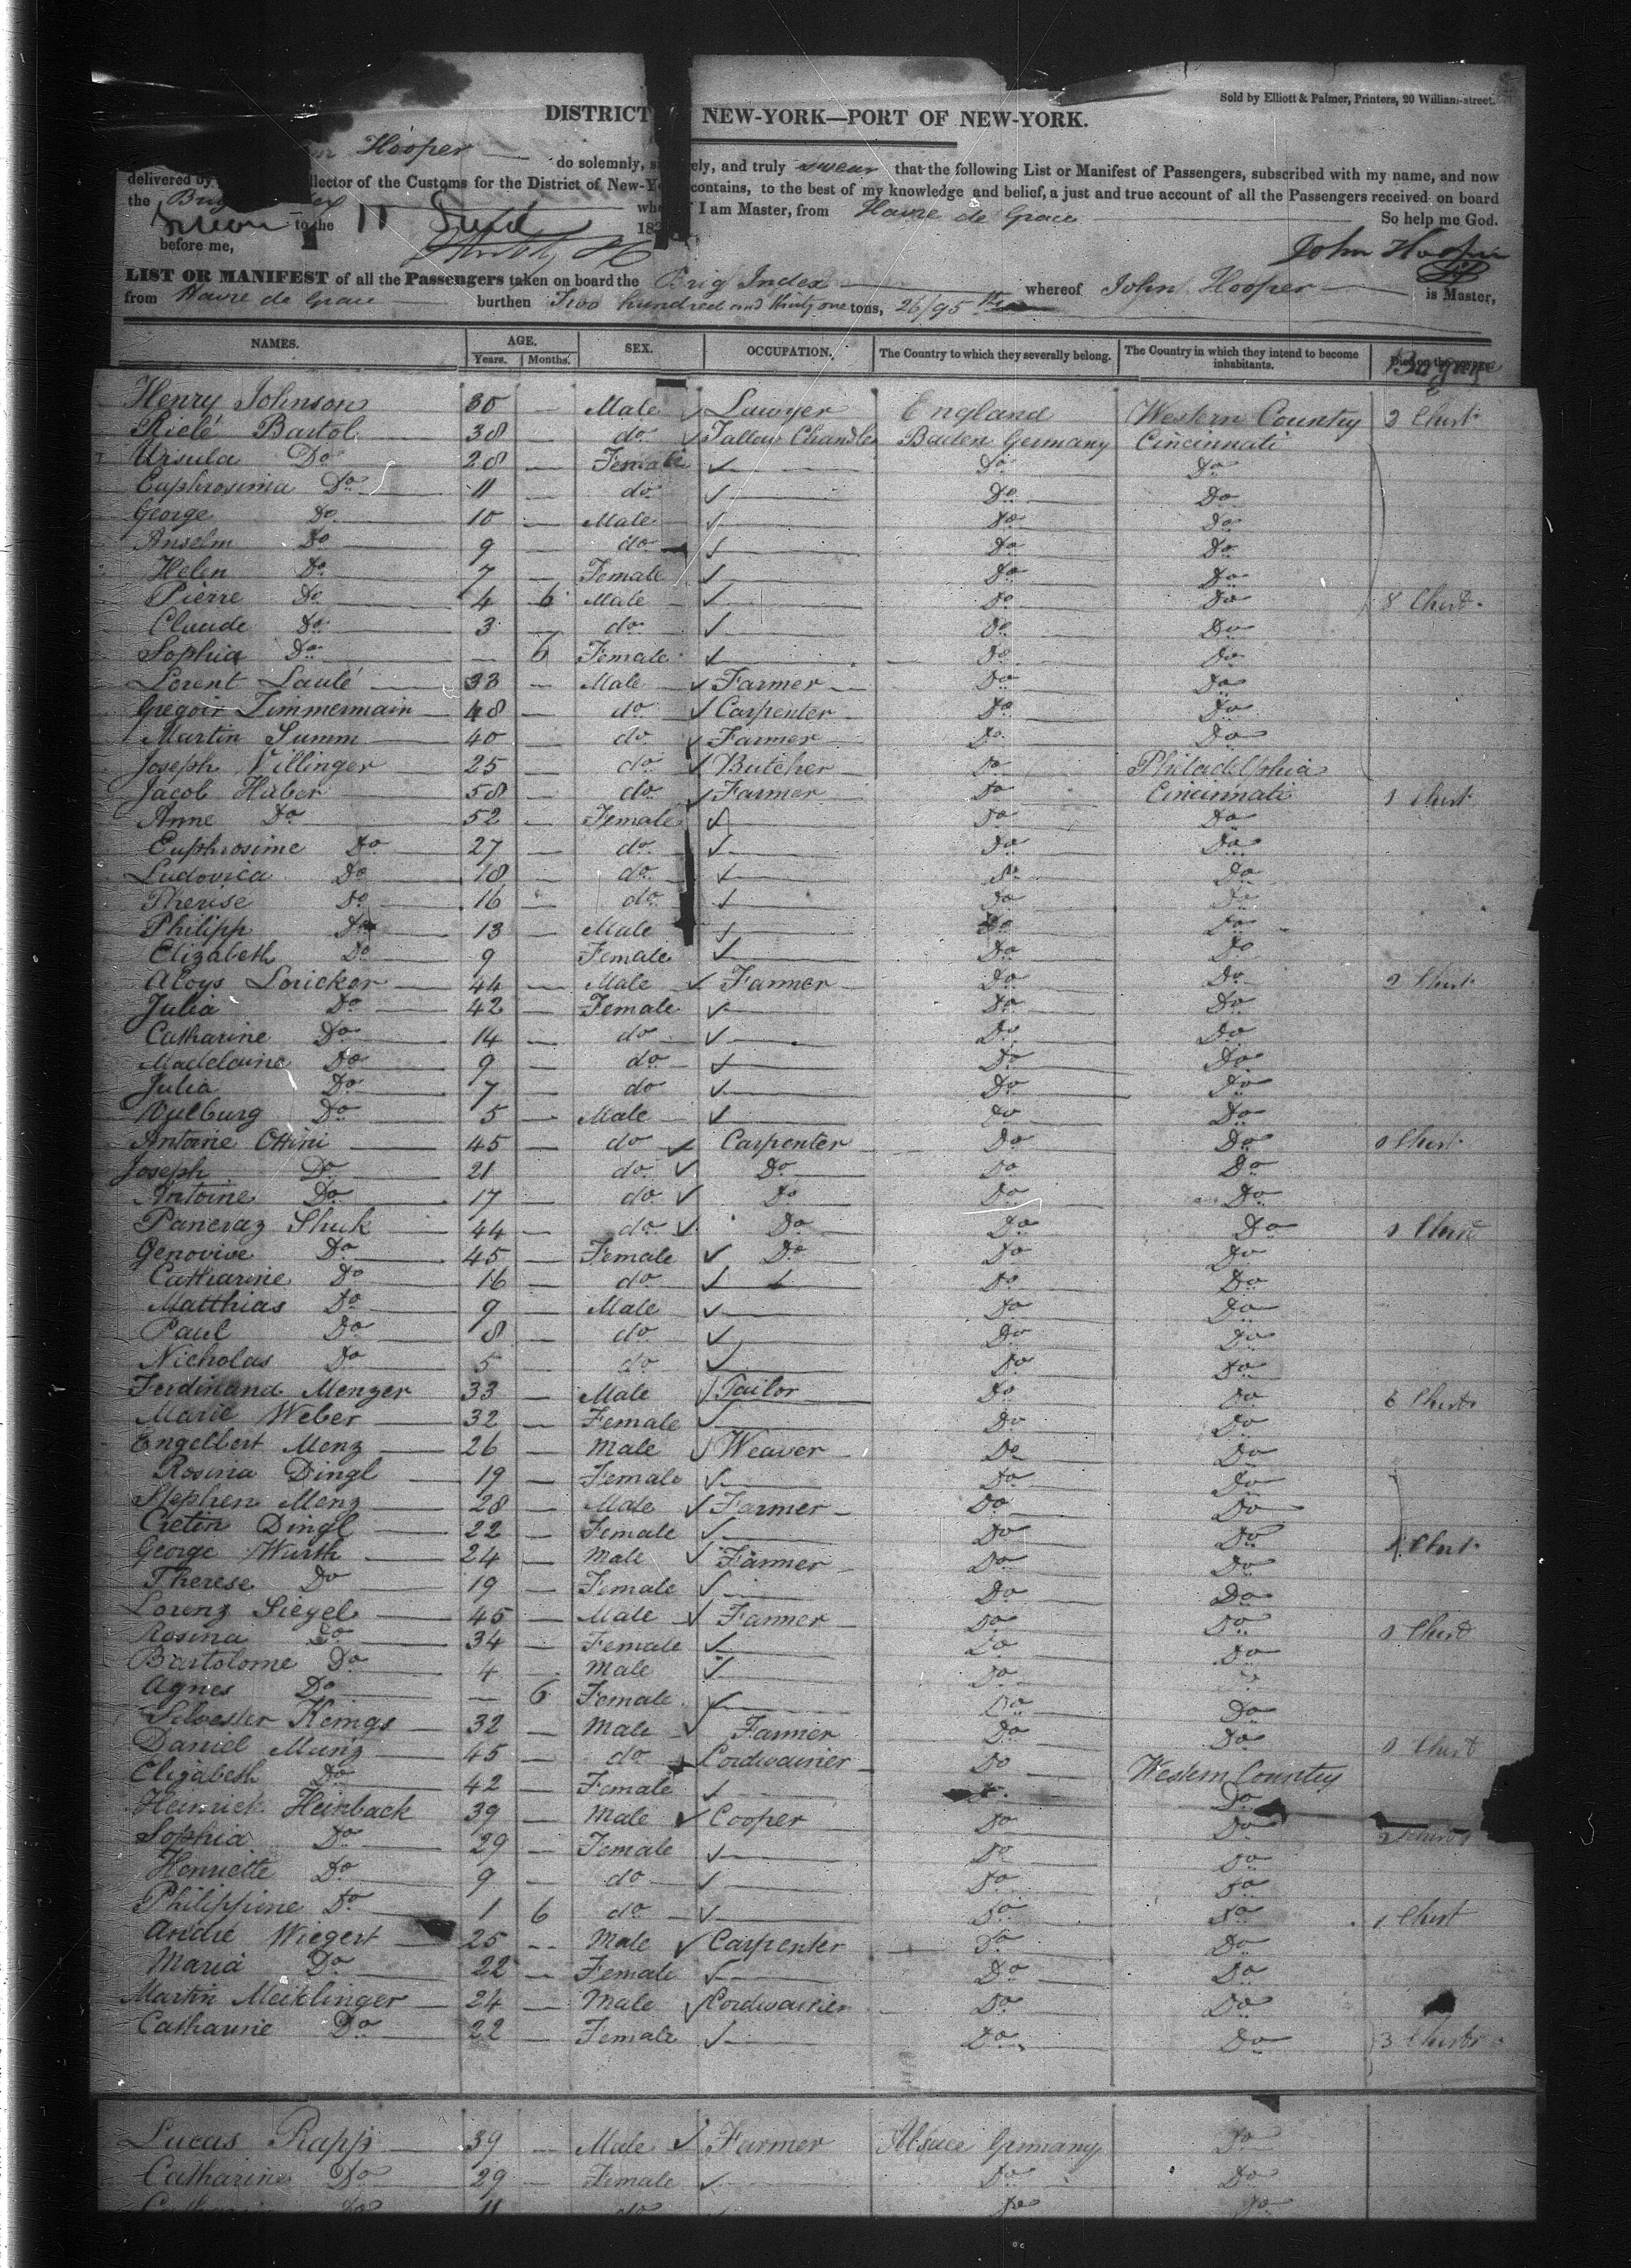 Sold by Elliott & Palmer, Printers, 20 William-street.
DISTRICT NEW-YORK—PORT OF NEW-YORK.
Hooper do solemnly, ely, and truly swear that the following List or Manifest of Passengers, subscribed with my name, and now
delivered by llector of the Customs for the District of New-Y contains, to the best of my knowledge and belief, a just and true account of all the Passengers received on board
the Brig I am Master, from Havre de Grace So help me God.
to the 11 183
before me, John Hooper
LIST OR MANIFEST of all the Passengers taken on board the Brig Index whereof John Hooper is Master,
from Havre de Grace burthen Two hundred and thirty one tons, 26/95 ths
NAMES. AGE. Years. Months. SEX. OCCUPATION. The Country to which they severally belong. The Country in which they intend to become inhabitants.
Henry Johnson 30 — Male Lawyer England Western Country 2 Chest
Rielé Bartol 38 — do Tallow Chandle Baden Germany Cincinnati
Ursula Do 28 — Female Do Do
Euphrosinia Do 11 — do Do Do
George Do 10 — Male Do Do
Anselm Do 9 — do Do Do
Helen Do 7 — Female Do Do
Pierre Do 4 6 Male Do Do 8 Chest
Claude Do 3 — do Do Do
Sophia Do — 6 Female Do Do
Lorent Laulé 33 — Male Farmer Do Do
Gregoir Zimmermain 48 — do Carpenter Do Do
Martin Summ 40 — do Farmer Do Do
Joseph Villinger 25 do Butcher Do Philadelphia
Jacob Huber 58 do Farmer Do Cincinnati 1 Chest
Anne Do 52 Female Do Do
Euphrosime Do 27 do Do Do
Ludovica Do 18 do Do Do
Therise Do 16 do Do Do
Philipp Do 13 Male Do Do
Elizabeth Do 9 Female Do Do
Aloys Loricker 44 — Male Farmer Do Do 2 Chest
Julia Do 42 — Female Do Do
Catharine Do 14 — do Do Do
Madelaine Do 9 — do Do Do
Julia Do 7 — do Do Do
Wulburg Do 5 — Male Do Do
Antoine Ottini 45 — do Carpenter Do Do 1 Chest
Joseph Do 21 — do Do Do Do
Antoine Do 17 — do Do Do Do
Pancraz Shuk 44 — do Do Do Do 1 Chest
Genovive Do 45 — Female Do Do Do
Catharine Do 16 — do Do Do
Matthias Do 9 — Male Do Do
Paul Do 8 — do Do Do
Nicholas Do 5 — do Do Do
Ferdinand Menzer 33 — Male Tailor Do Do 6 Chests
Marie Weber 32 — Female Do Do
Engelbert Menz 26 — Male Weaver Do Do
Rosina Dingl 19 — Female Do Do
Stephen Menz 28 — Male Farmer Do Do
Cretin Dingl 22 — Female Do Do
George Wurth 24 — Male Farmer Do Do Chest
Therese Do 19 — Female Do Do
Lorenz Siegel 45 — Male Farmer Do Do 1 Chest
Rosina Do 34 — Female Do Do
Bartolome Do 4 — Male Do Do
Agnes Do — 6 Female Do Do
Silvester Kemgs 32 — Male Farmer Do Do
Daniel Munz 45 — do Cordwainer Do Western Country 1 Chest
Elizabeth Do 42 — Female Do
Heinrich Heinback 39 — Male Cooper Do Do
Sophia Do 29 — Female Do Do
Henriette Do 9 — do Do Do
Philippine Do 1 6 do Do Do 1 Chest
André Wiegert 25 — Male Carpenter Do Do
Maria Do 22 — Female Do Do
Martin Mecklinger 24 — Male Cordwainer Do Do
Catharine Do 22 — Female Do Do 3 Chests
Lucas Rapp 39 — Male Farmer Alsace Germany Do
Catharine Do 29 — Female Do Do
Do 11 do Do Do